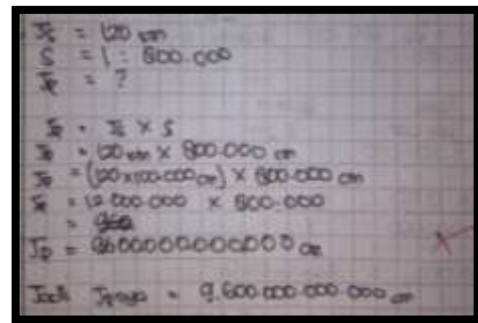 Js = 120 km
S = 1 : 800.000
Jp = ?
Jp = Js x S
Jp = 120 km x 800.000 cm
Jp = (120 x 100.000 cm) x 800.000 cm
Jp = 12.000.000 x 800.000
= 960
Jp = 9600000000000 cm
Jadi Jpnya = 9.600.000.000.000 cm